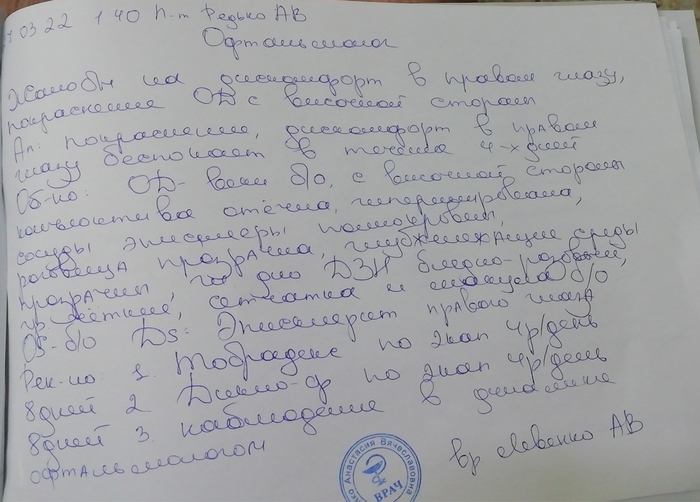 03 22 1 40 п-т Редько АВ
Офтальмолог
Жалобы на дискомфорт в правом глазу,
покраснение OD с височной стороны
Ан: покраснение, дискомфорт в правом
глазу беспокоит в течение 4-х дней
Об-но: OD- веки б/о, с височной стороны
конъюктива отёчна, гиперимирована,
сосуды эписклеры полнокровны,
роговица прозрачна, глубжележащие среды
прозрачны, гл дно ДЗН бледно-розовый,
гр чёткие, сетчатка и макула б/о
OS- б/о Ds: Эписклерит правого глаза
Рек-но 1. Тобрадекс по 2 кап 4р/день
8дней 2 Дикло-ф по 2 кап 4р/день
8дней 3. наблюдение в динамике
офтальмологом
вр Левенко АВ
Анастасия Вячеславовна
ВРАЧ